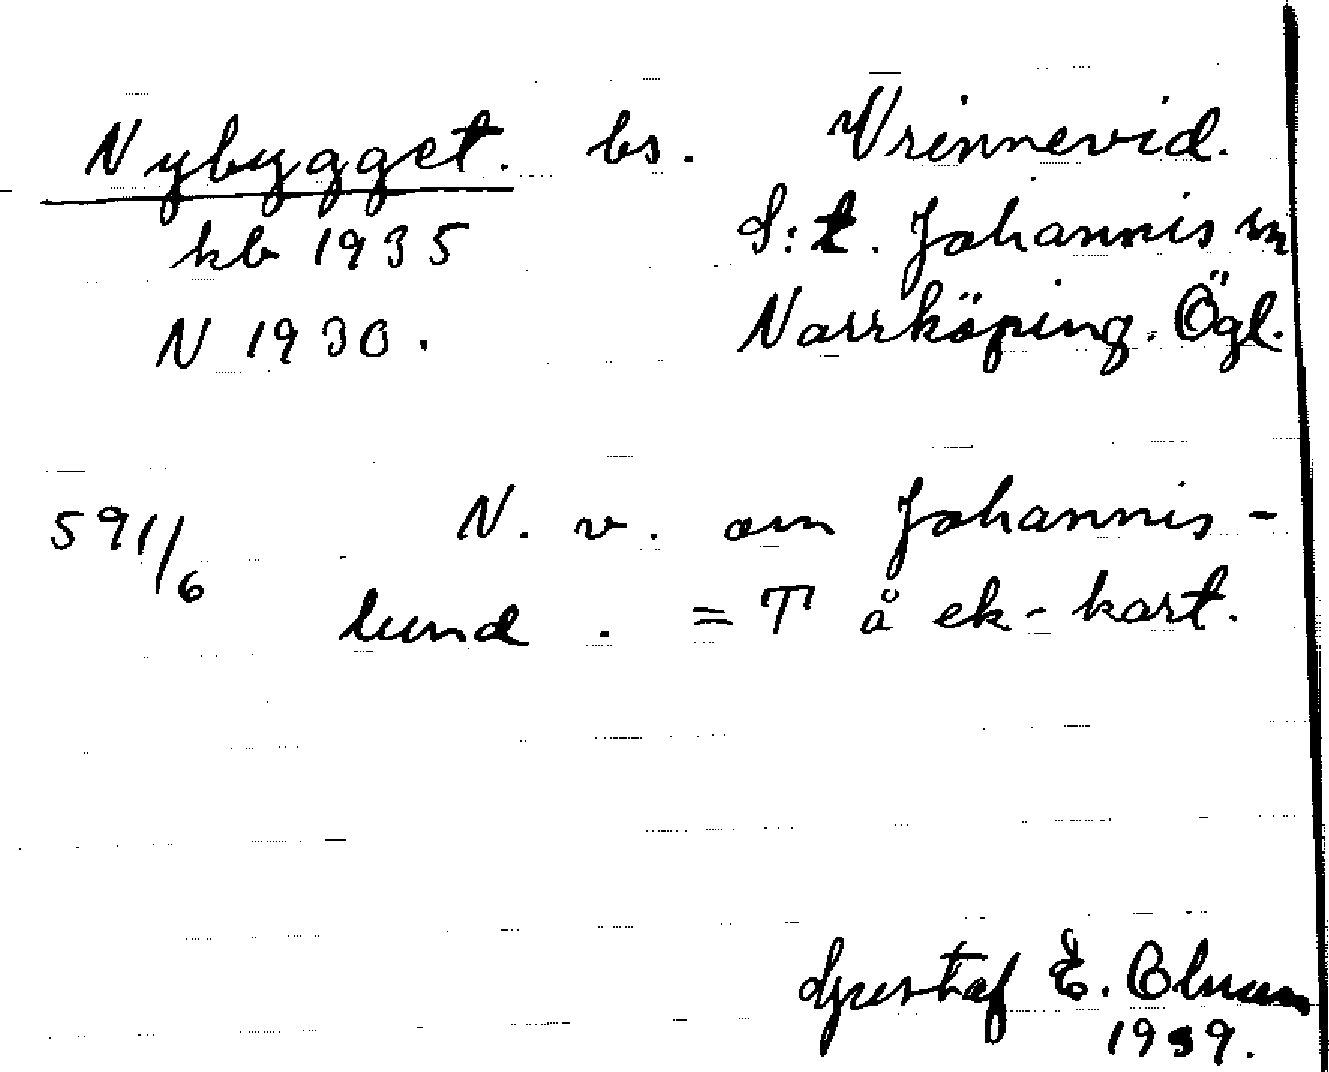 Nybygget. bs. Vrinnevid.
kb 1935 S:t. Johannis sn
N 1930. Norrköping. Ögl.
591/6 N. v. om Johannis-
lund. = T å ek-kart.
Gustaf E. Olsson
1939.